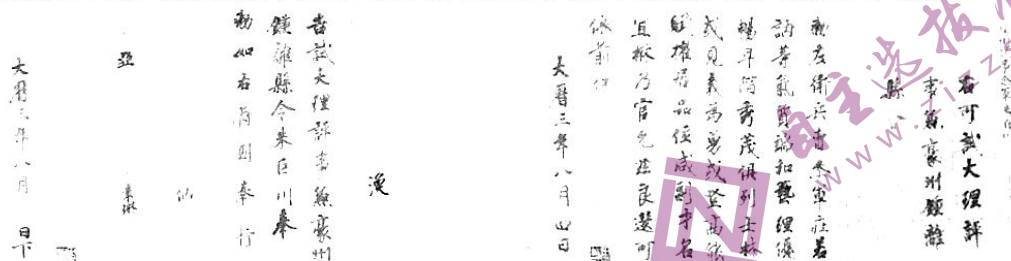 右可試大理評
事兼豪州鍾離
縣令
勅左衛兵曹參軍莊若
訥等氣質端和藝理優
暢早階秀茂俱列士林
或見義為勇或登高能
賦擢居品位咸副才名
宜楙乃官允茲良選可
依前件
大曆三年八月四日
告試大理評事兼豪州
鍾離縣令朱巨川奉
勅如右符到奉行
仙
亞
大曆三年八月 日下
自主选拔
www.zizz